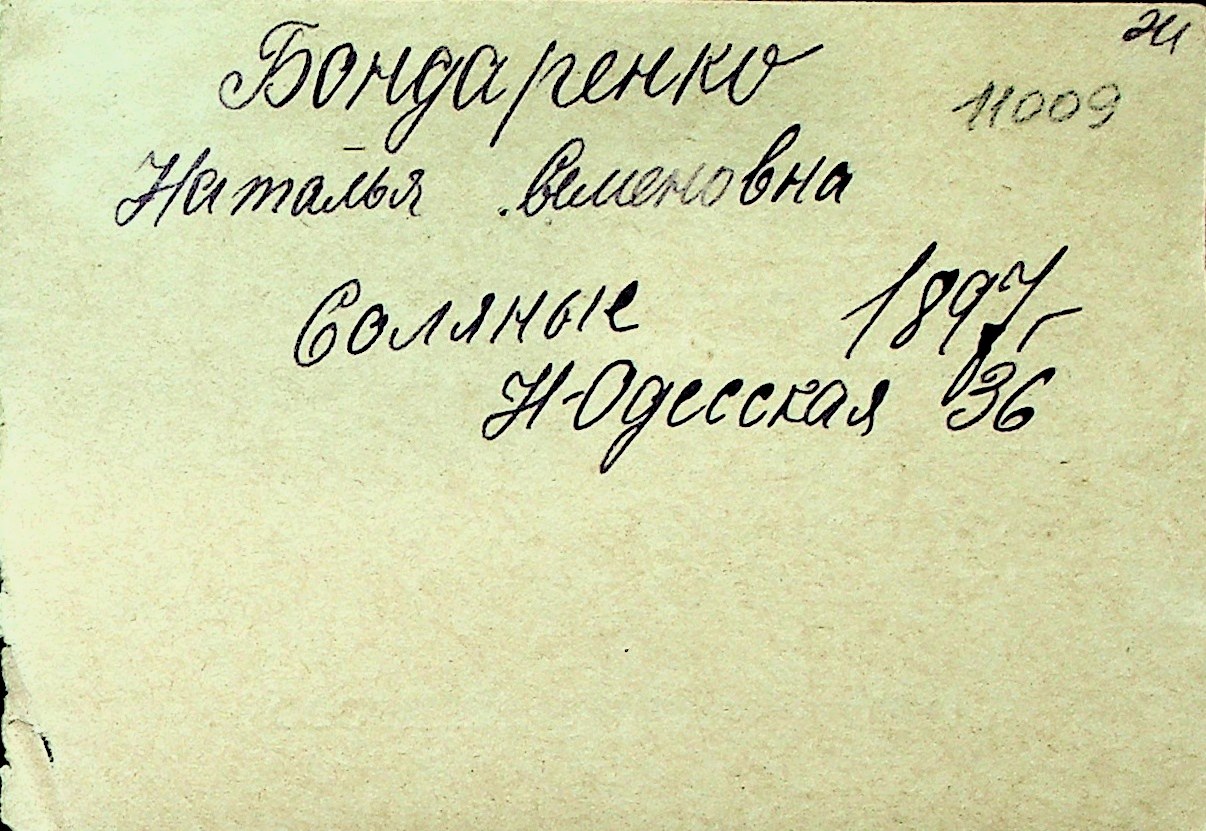 Бондаренко
11009
Наталья Семеновна
Соляные 1897г
Н-Одесская 36